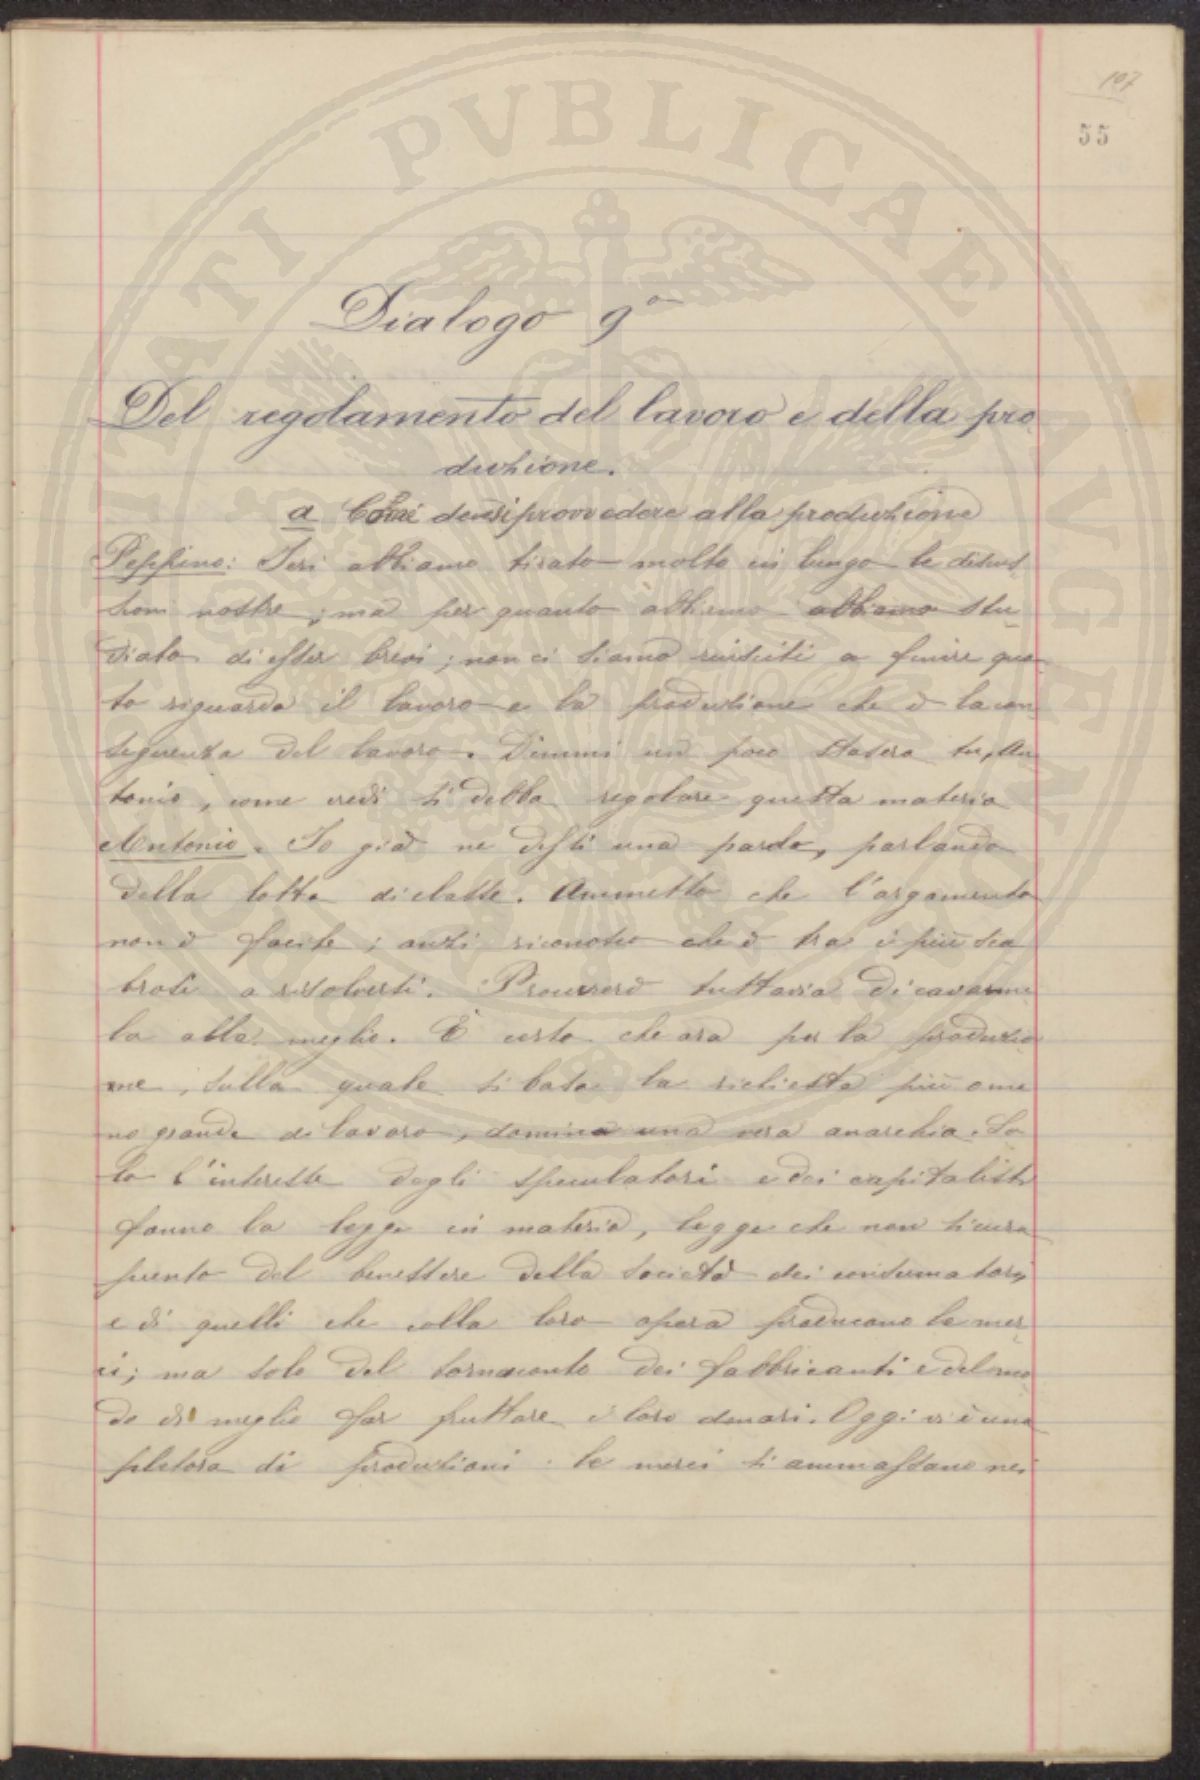 107
55
Dialogo 9°
Del regolamento del lavoro e della pro
duzione.
a Come devesi provvedere alla produzione
Peppino: Ieri abbiamo tirato molto in lungo le discus
sioni nostre; ma per quanto abbiamo abbiamo stu
diato di esser brevi; non ci siamo riusciti a finire qua
to riguarda il lavoro e la produzione che è la con
seguenza del lavoro. Dimmi un poco stasera tu, An
tonio, come credi si debba regolare questa materia
Antonio. Io già ne dissi una parola, parlando
della lotta di classe. Ammetto che l'argomento
non è facile; anzi riconosco che è tra i più sca
brosi a risolversi. Procurerò tuttavia di cavarme
la alla meglio. È certo che ora per la produzio
ne, sulla quale si basa la richiesta più o me
no grande di lavoro, domina una vera anarchia. So
lo l'interesse degli speculatori e dei capitalisti
fanno la legge in materia, legge che non si cura
punto del benessere della società dei consumatori,
e di quelli che colla loro opera producano le mer
ci; ma solo del tornaconto dei fabbricanti e del mo
do di meglio far fruttare i loro denari. Oggi vi è una
pletora di produzioni: le merci si ammassano nei
PUBLICAE